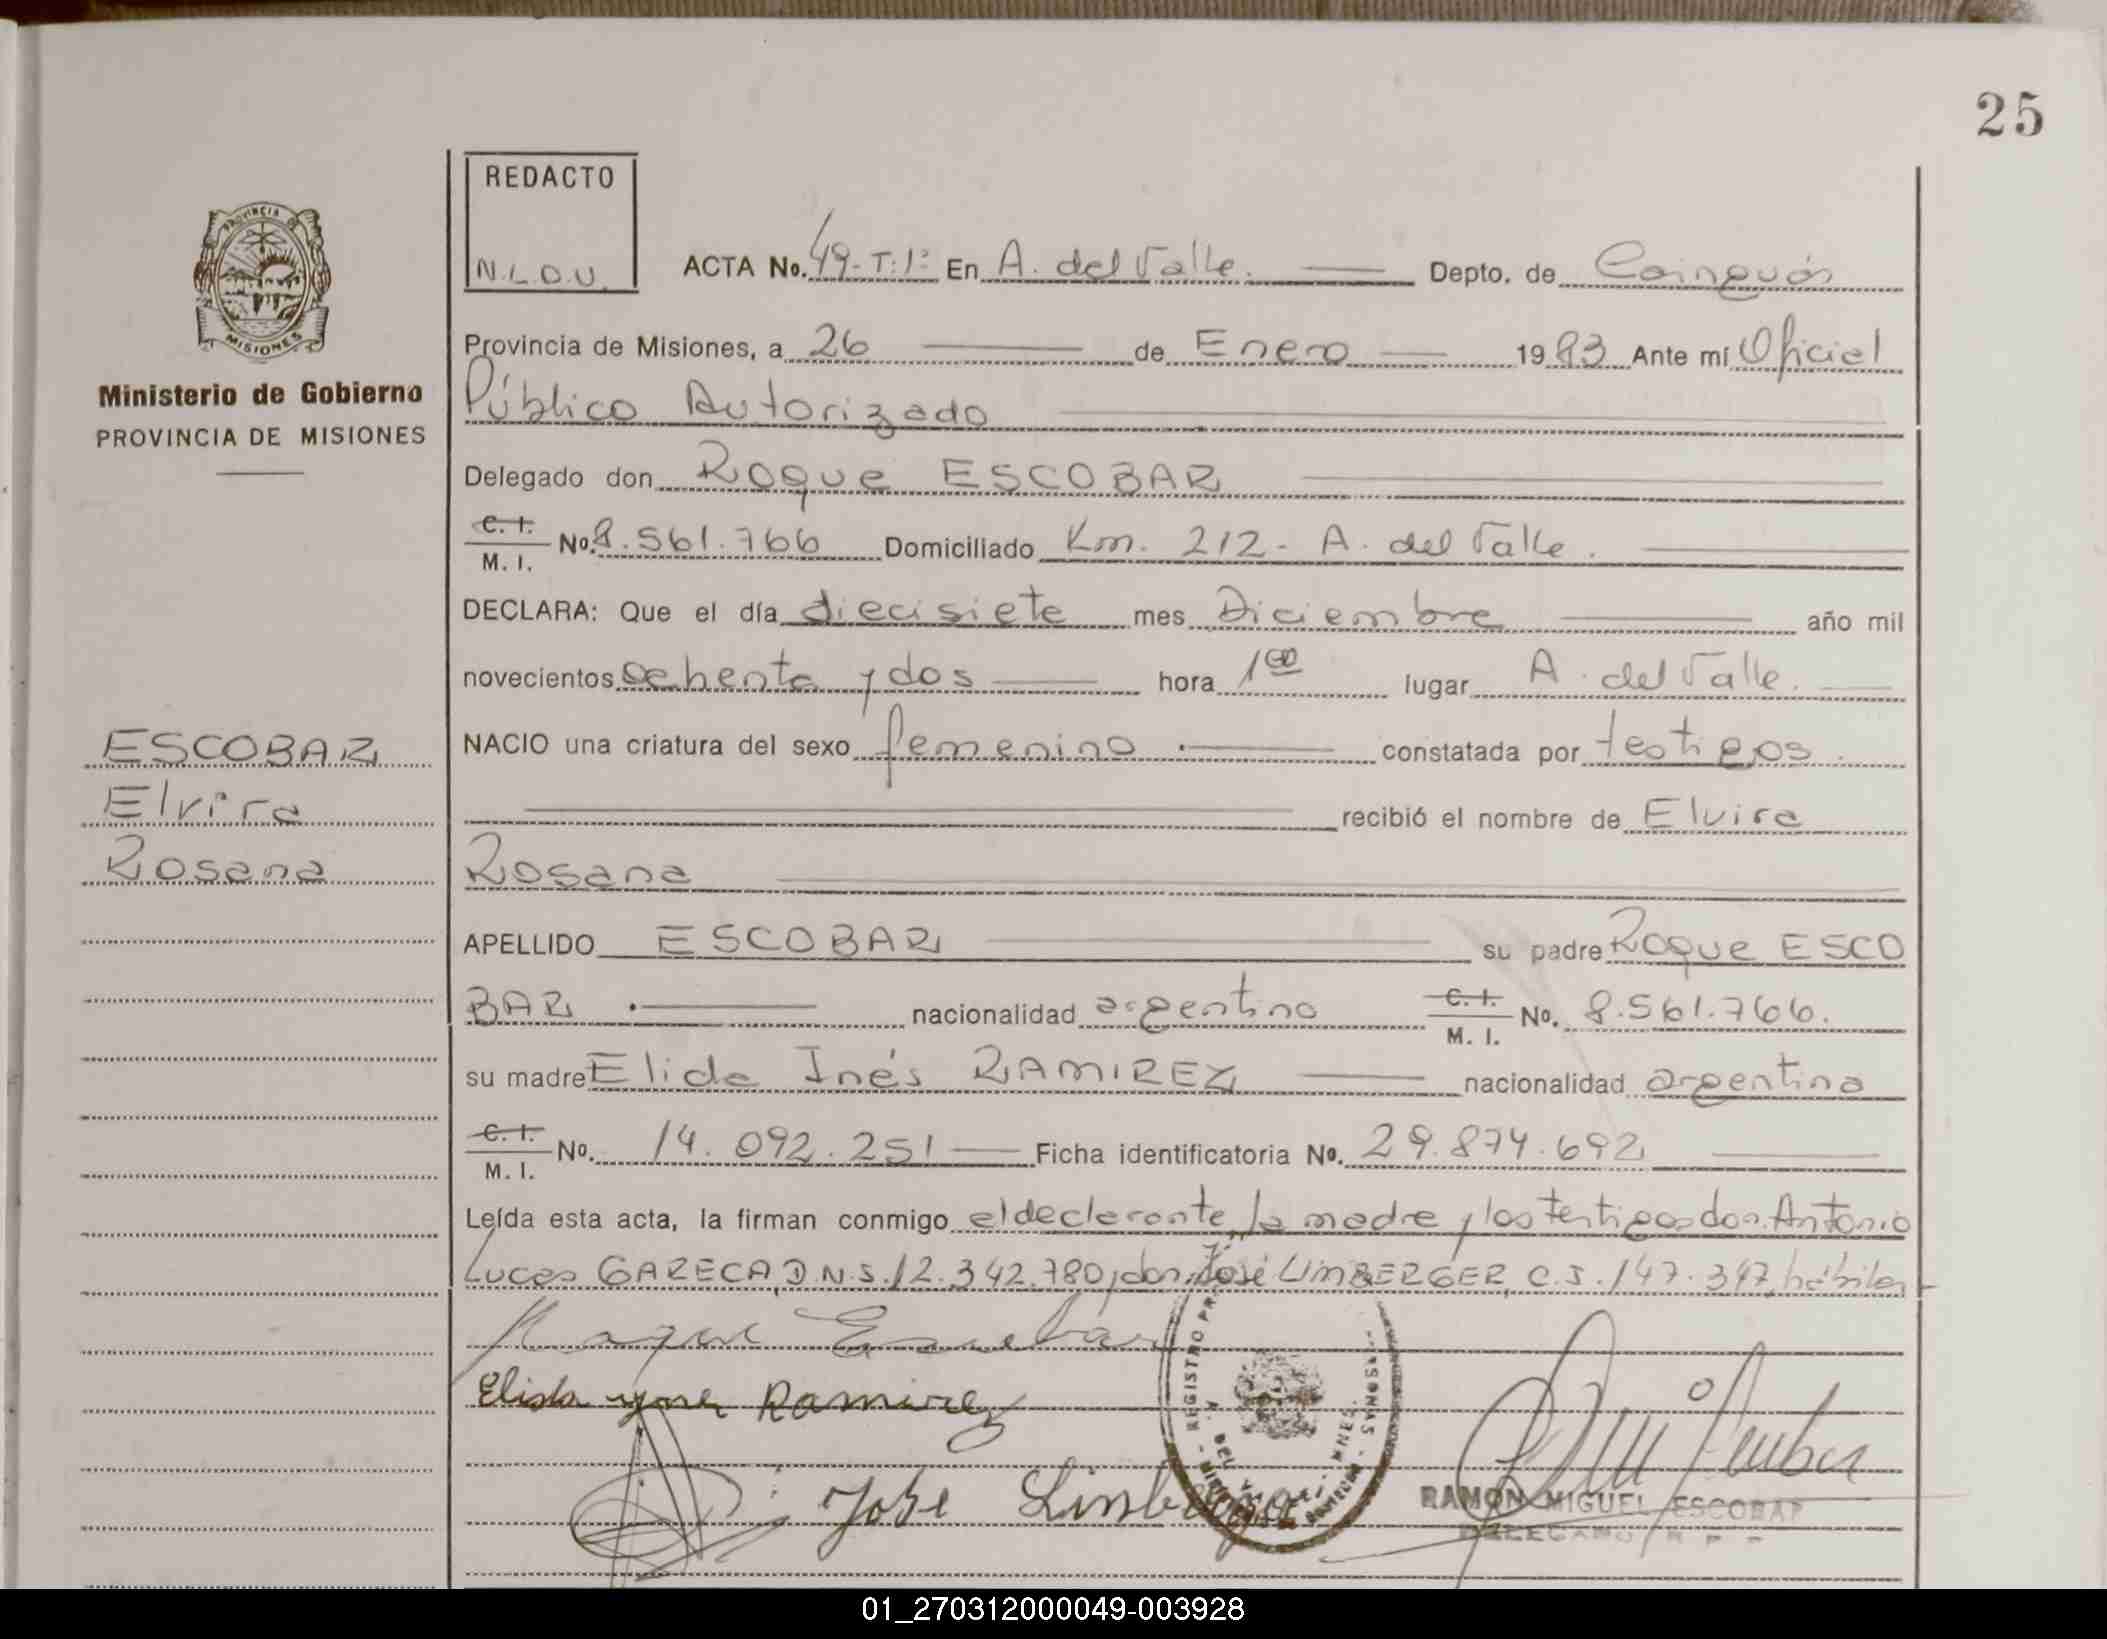 25
REDACTO
N.L.D.U.
PROVINCIA DE
MISIONES
Ministerio de Gobierno
PROVINCIA DE MISIONES
ESCOBAR
Elvira
Rosana
ACTA No. 49-T:1º En A. del Valle. Depto. de Cainguás
Provincia de Misiones, a 26 de Enero 1983 Ante mí Oficial
Público Autorizado
Delegado don Roque ESCOBAR
C. I. M. I. No. 8.561.766 Domiciliado Km. 212- A. del Valle.
DECLARA: Que el día diecisiete mes Diciembre año mil
novecientos ochenta y dos hora 1 00 lugar A. del Valle.
NACIO una criatura del sexo femenino constatada por testigos
recibió el nombre de Elvira
Rosana
APELLIDO ESCOBAR su padre Roque ESCO
BAR nacionalidad argentino C. I. M. I. No. 8.561.766.
su madre Elida Inés RAMIREZ nacionalidad argentina
C. I. M. I. No. 14.092.251 Ficha identificatoria No. 29.874.692
Leída esta acta, la firman conmigo el declarante, la madre y los testigos don Antonio
Lucas GARECA, D.N.I. 12.342.780, don José LIMBERGER, C.I. 147.347, hábiles
Roque Escobar
Elida ynes Ramirez
José Limberger
REGISTRO PR
PERSONAS
RAMON MIGUEL ESCOBAR
DELEGADO R P
01_270312000049-003928